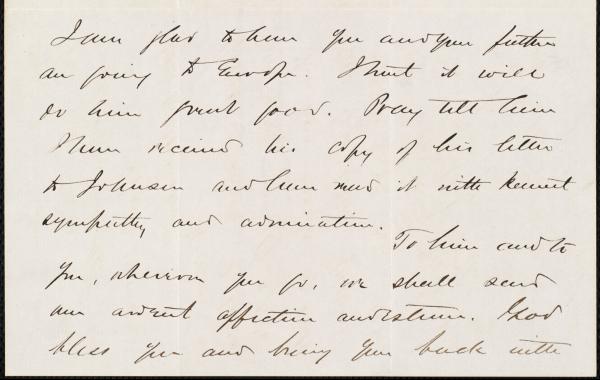 I am glad to hear you and your father
are going to Europe. I trust it will
do him great good. Pray tell him
I have received his copy of his letter
to Johnson and have read it with
sympathy and admiration.
To him and to
you, wherever you go, we shall send
our ardent affection and esteem. God
bless you and bring you back with